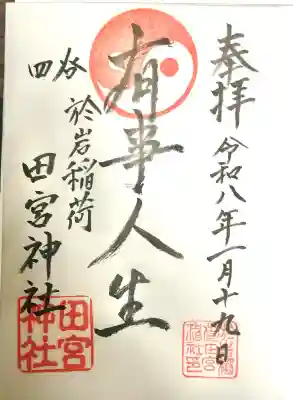 奉拝
令和八年一月十九日
有事人生
四谷
於岩稲荷
田宮神社
田宮
神社